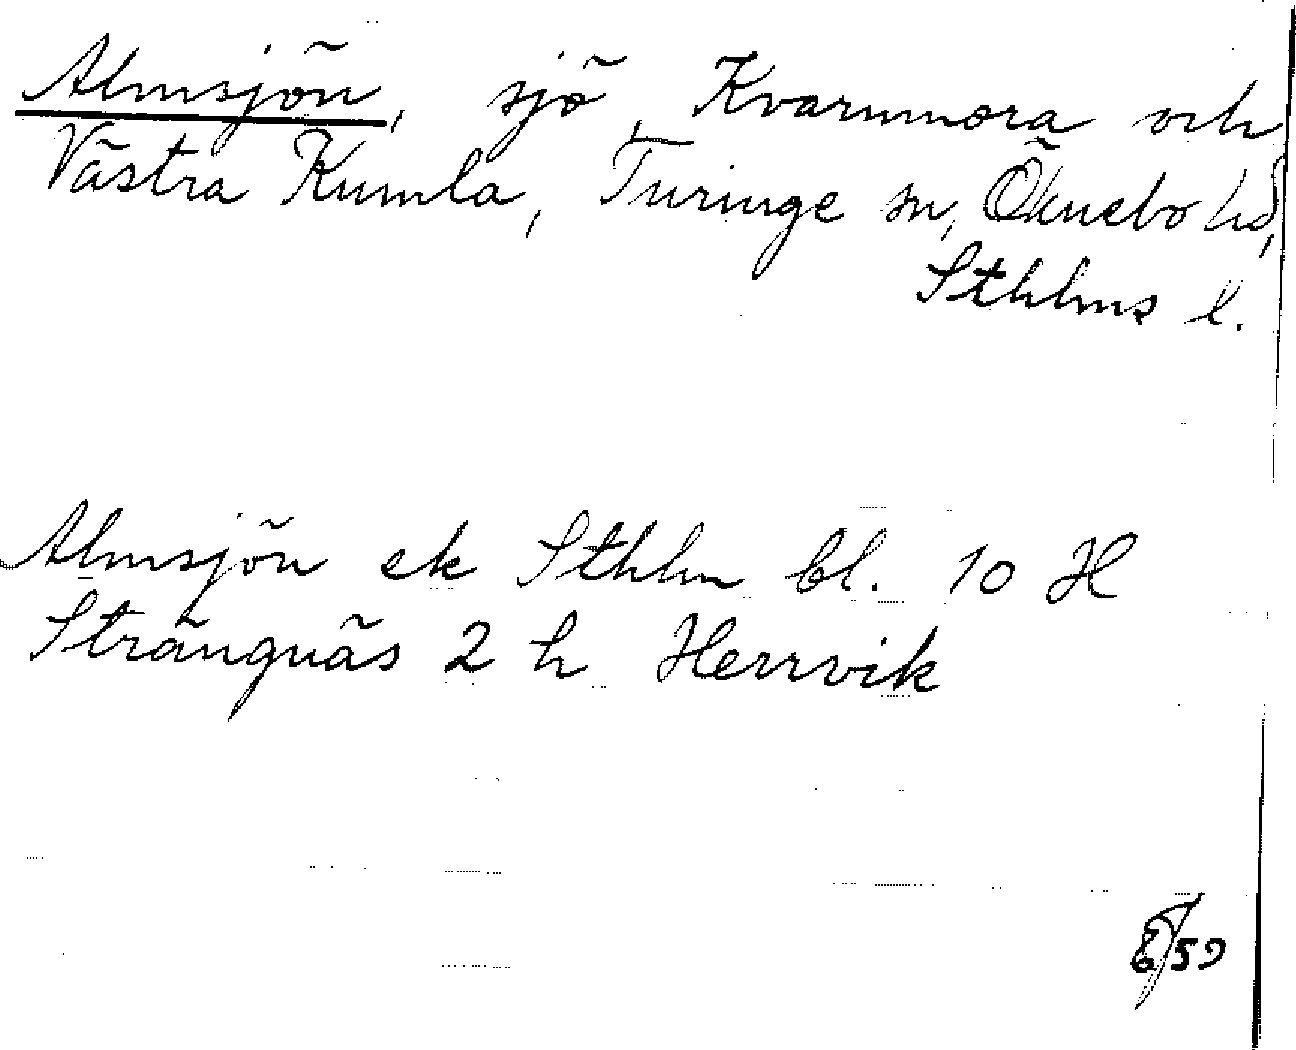 Almsjön, sjö, Kvarnmora och
Västra Kumla, Turinge sn, Öknebo hd,
Sthlms l.
Almsjön ek Sthlm bl. 10 H
Strängnäs 2 h Herrvik
59